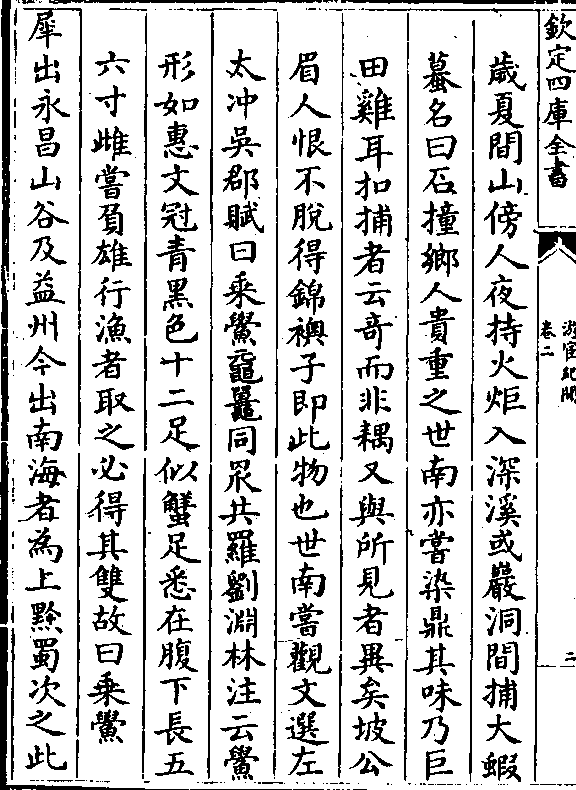 欽定四庫全書
游宦紀聞
卷二
二
歲夏間山傍人夜持火炬入深溪或巖洞間捕大蝦
蟇名曰石撞鄉人貴重之世南亦嘗染鼎其味乃巨
田雞耳扣捕者云竒而非耦又與所見者異矣坡公
眉人恨不脫得錦襖子即此物也世南嘗觀文選左
太冲吳郡賦曰乘鱟黿鼉同罛共羅劉淵林注云鱟
形如惠文冠青黑色十二足似蟹足悉在腹下長五
六寸雌嘗負雄行漁者取之必得其雙故曰乘鱟
犀出永昌山谷及益州今出南海者為上黔蜀次之此